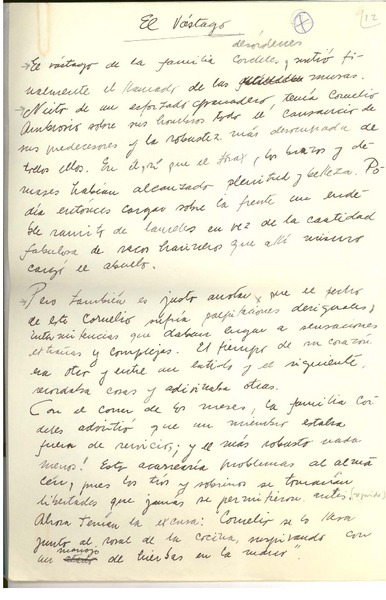 El Vástago
12
desórdenes
El vástago de la familia Cordelles, sintió fi-
nalmente el llamado de las musas.
Nieto de un esforzado granadero, tenía Cornelio
Ambrosio sobre sus hombros todo el cansancio de
sus predecesores y la robustez más desocupada de
todos ellos. En él, sí que el tórax, los brazos y de-
más habían alcanzado plenitud y belleza. Po-
día entonces cargar sobre la frente un ende-
ble ramito de laureles en vez de la cantidad
fabulosa de sacos harineros que allí mismo
cargó el abuelo.
Pero también es justo anotar, que el pecho
de este Cornelio sufría palpitaciones desiguales,
intermitencias que daban lugar a sensaciones
extrañas y complejas. El tiempo de su corazón
era otro y entre un latido y el siguiente,
recordaba cosas y adivinaba otras.
Con el correr de los meses, la familia Cor-
delles advirtió que un miembro estaba
fuera de servicio; y el más robusto nada
menos! Esto acarrearía problemas al alma-
cén, pues los tíos y sobrinos se tomarían
libertades que jamás se permitieron antes (seguido)
Ahora tenían la excusa: "Cornelio se lo pasa
junto al rosal de la cocina, suspirando con
un manojo de hierbas en la mano".